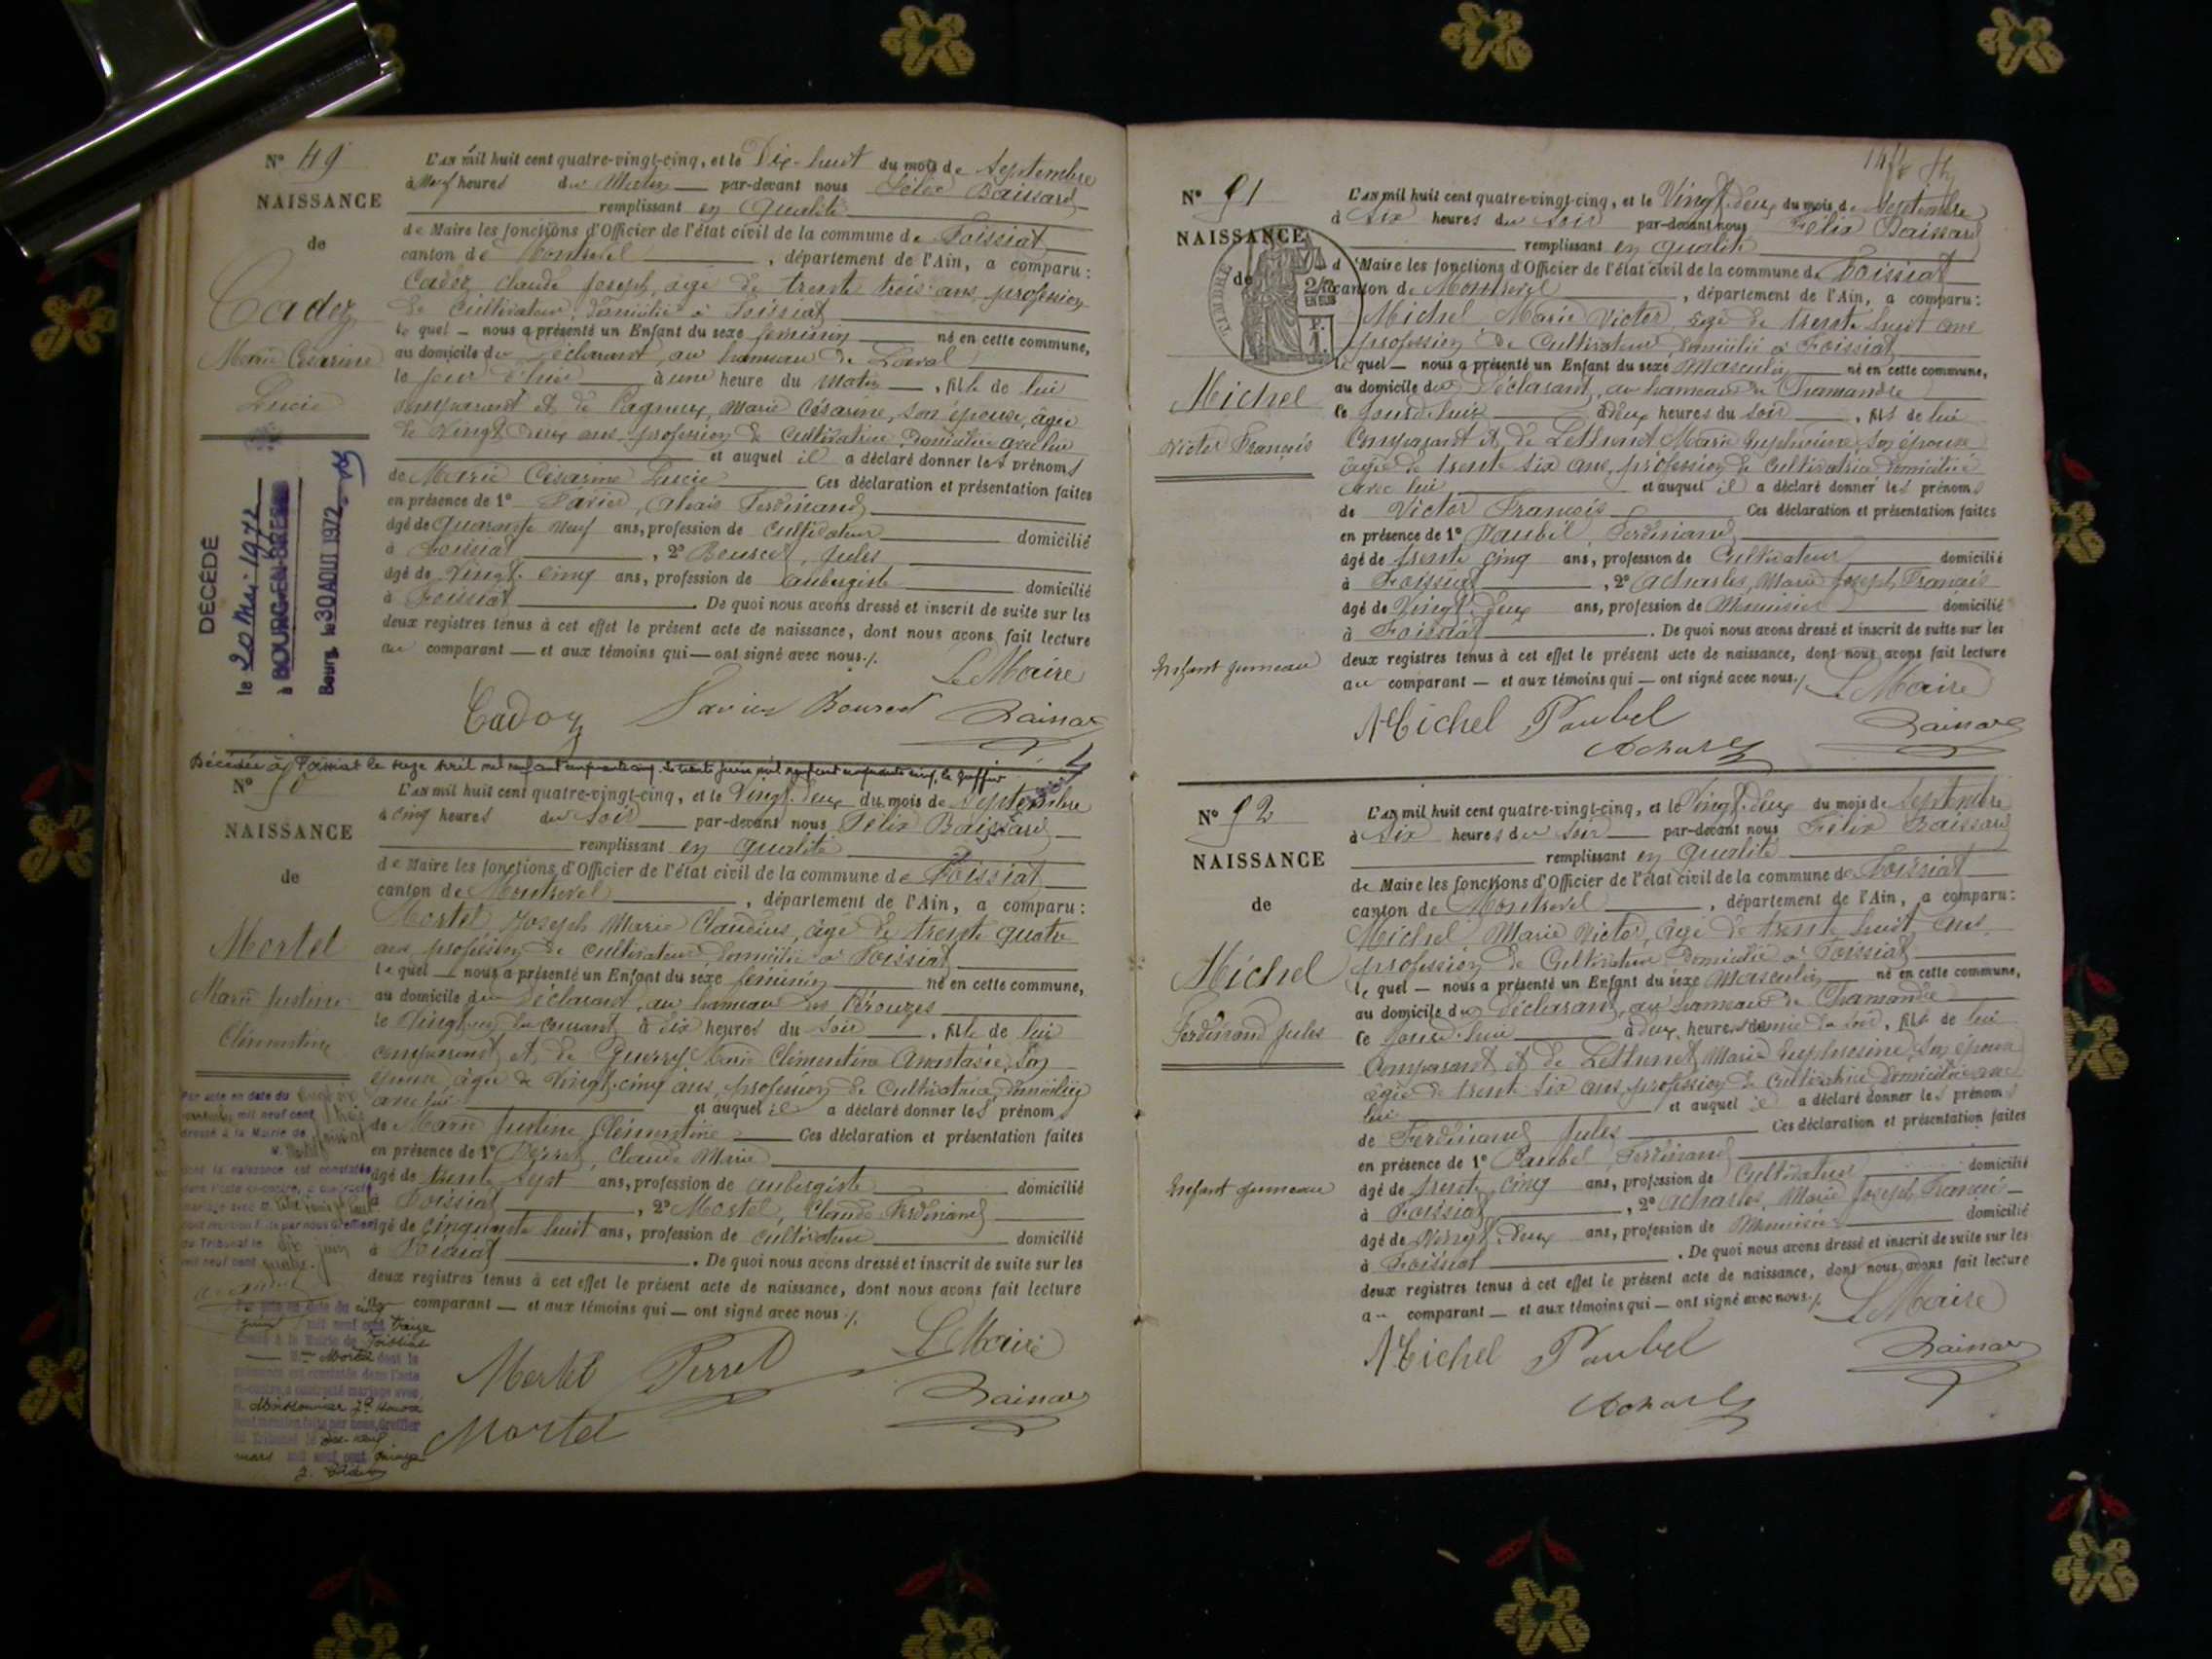 N° 49
NAISSANCE
de
Cadoz
Marie Césarine
Lucie
DÉCÉDÉ
le 20 Mai 1972
à BOURG-EN-BRESSE
Bourg, le 30 AOUT 1972
L'an mil huit cent quatre-vingt-cinq, et le Dix-huit du mois de Septembre
à Neuf heures du Matin par-devant nous Félix Baissard
remplissant en qualité
de Maire les fonctions d'Officier de l'état civil de la commune de Foissiat
canton de Montrevel, département de l'Ain, a comparu :
Cadoz, Claude Joseph, âgé de trente trois ans, profession
de Cultivateur, domicilié à Foissiat
lequel — nous a présenté un Enfant du sexe féminin né en cette commune,
au domicile du déclarant, au hameau de Laval
le jour d'hier à une heure du matin, fille de lui
comparant et de Pagneux, Marie Césarine, son épouse, âgée
de Vingt deux ans, profession de Cultivatrice domiciliée avec lui
et auquel il a déclaré donner les prénoms
de Marie Césarine Lucie Ces déclaration et présentation faites
en présence de 1° Ferdinand
âgé de quarante neuf ans, profession de Cultivateur domicilié
à Foissiat, 2° Bourcet, Jules
âgé de Vingt-cinq ans, profession de aubergiste domicilié
à Foissiat. De quoi nous avons dressé et inscrit de suite sur les
deux registres tenus à cet effet le présent acte de naissance, dont nous avons fait lecture
au comparant — et aux témoins qui — ont signé avec nous ./.
Le Maire
Cadoz Bourcet
Décédée à Foissiat le seize avril mil neuf cent cinquante cinq. Le trente juin mil neuf cent cinquante cinq, le greffier
N° 50
NAISSANCE
de
Mortel
Marie Justine
Clémentine
L'an mil huit cent quatre-vingt-cinq, et le Vingt-deux du mois de Septembre
à cinq heures du Soir par-devant nous Félix Baissard
remplissant en qualité
de Maire les fonctions d'Officier de l'état civil de la commune de Foissiat
canton de Montrevel, département de l'Ain, a comparu :
Mortel, Joseph Marie Claudius, âgé de trente quatre
ans, profession de cultivateur, domicilié à Foissiat
lequel — nous a présenté un Enfant du sexe féminin né en cette commune,
au domicile du déclarant, au hameau des Pérouzes
le Vingt-un du courant, à dix heures du Soir, fille de lui
comparant et de Marie Clémentine Anastasie, son
épouse, âgée de Vingt-cinq ans, profession de Cultivatrice, domiciliée
avec lui et auquel il a déclaré donner les prénoms
de Marie Justine Clémentine Ces déclaration et présentation faites
en présence de 1° Perret, Claude Marie
âgé de trente sept ans, profession de aubergiste domicilié
à Foissiat, 2° Mortel, Claude Ferdinand
âgé de cinquante huit ans, profession de Cultivateur domicilié
à Foissiat. De quoi nous avons dressé et inscrit de suite sur les
deux registres tenus à cet effet le présent acte de naissance, dont nous avons fait lecture
au comparant — et aux témoins qui — ont signé avec nous ./.
Le Maire
Mortel Perret
Mortel
Par acte en date du
mil neuf cent trois
dressé à la Mairie de Foissiat
dont la naissance est constatée
du Tribunal le six juin
mil neuf cent quatre
Par acte en date du cinq
mil neuf cent treize
dressé à la Mairie de Foissiat
Mortel dont la
naissance est constatée dans l'acte
ci-contre a contracté mariage avec
dont mention faite par nous, Greffier
du Tribunal le dix-neuf
mars mil neuf cent quinze
N° 51
NAISSANCE
de
Michel
Victor François
Enfant jumeau
L'an mil huit cent quatre-vingt-cinq, et le Vingt-deux du mois de Septembre
à Six heures du Soir par-devant nous Félix Baissard
remplissant en qualité
de Maire les fonctions d'Officier de l'état civil de la commune de Foissiat
canton de Montrevel, département de l'Ain, a comparu :
Michel Marie Victor, âgé de trente huit ans
profession de Cultivateur, domicilié à Foissiat
lequel — nous a présenté un Enfant du sexe masculin né en cette commune,
au domicile du déclarant, au hameau de Chamandre
ce jourd'hui à deux heures du soir, fils de lui
Comparant et de Marie Euphrosine, son épouse
âgée de trente six ans, profession de Cultivatrice domiciliée
avec lui et auquel il a déclaré donner les prénoms
de Victor François Ces déclaration et présentation faites
en présence de 1° Paubel, Ferdinand
âgé de trente cinq ans, profession de Cultivateur domicilié
à Foissiat, 2° Acharles, Marie Joseph François
âgé de Vingt-deux ans, profession de Menuisier domicilié
à Foissiat. De quoi nous avons dressé et inscrit de suite sur les
deux registres tenus à cet effet le présent acte de naissance, dont nous avons fait lecture
au comparant — et aux témoins qui — ont signé avec nous ./.
Le Maire
Michel Paubel
N° 52
NAISSANCE
de
Michel
Ferdinand Jules
Enfant jumeau
L'an mil huit cent quatre-vingt-cinq, et le Vingt-deux du mois de Septembre
à Six heures du Soir par-devant nous Félix Baissard
remplissant en qualité
de Maire les fonctions d'Officier de l'état civil de la commune de Foissiat
canton de Montrevel, département de l'Ain, a comparu :
Michel Marie Victor, âgé de trente huit ans,
profession de Cultivateur, domicilié à Foissiat
lequel — nous a présenté un Enfant du sexe masculin né en cette commune,
au domicile du déclarant, au hameau de Chamandre
ce jourd'hui à deux heures et demie du soir, fils de lui
Comparant et de Marie Euphrosine, son épouse
âgée de trente six ans, profession de Cultivatrice domiciliée avec
lui et auquel il a déclaré donner les prénoms
de Ferdinand Jules Ces déclaration et présentation faites
en présence de 1° Paubel, Ferdinand
âgé de trente cinq ans, profession de Cultivateur domicilié
à Foissiat, 2° Acharles, Marie Joseph François
âgé de Vingt-deux ans, profession de Menuisier domicilié
à Foissiat. De quoi nous avons dressé et inscrit de suite sur les
deux registres tenus à cet effet le présent acte de naissance, dont nous avons fait lecture
au comparant — et aux témoins qui — ont signé avec nous ./.
Le Maire
Michel Paubel